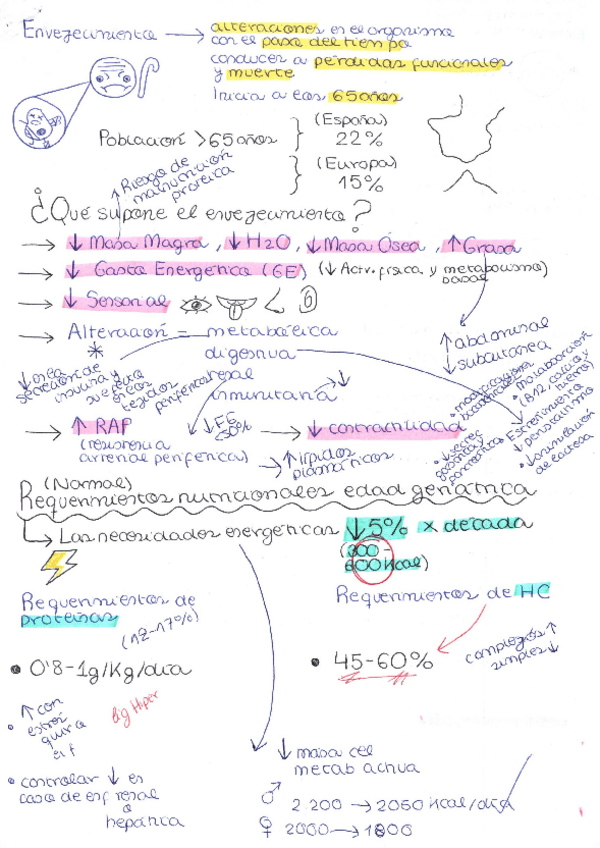 Envejecimiento → alteraciones en el organismo
con el paso del tiempo
conducen a pérdidas funcionales
y muerte
Inicia a los 65 años
Población >65 años
(España)
22%
(Europa)
15%
↑ Riesgo de
malnutrición
proteica
¿Qué supone el envejecimiento?
→ ↓ Masa Magra, ↓ H2O, ↓ Masa Ósea, ↑ Grasa
→ ↓ Gasto Energético (GE) (↓ Act. física y metabolismo
basal)
→ ↓ Sensorial
↑ abdominal
↓ subcutánea
→ Alteración = metabólica
digestiva
renal
inmunitaria → ↓
*
secreción de
insulina y
tejidos
periféricos
↓ FG
50%
• modificaciones
• malabsorción
(B12, calcio y
hierro)
• Estreñimiento
↓ peristaltismo
• ↓ asimilación
de lactosa
→ ↑ RAP
(resistencia
arterial periférica)
→ ↓ contractilidad
→ ↑ lípidos
plasmáticos
(Normal)
Requerimientos nutricionales edad geriátrica
↳ Las necesidades energéticas ↓5% x década
600 Kcal)
Requerimientos de
proteínas
(12-17%)
• 0'8-1g/Kg/día
Requerimientos de HC
• 45-60%
complejos ↑
simples ↓
• ↑ con
• controlar ↓ en
caso de enf renal
o
hepática
↓ masa cel
metab activa
♂ 2.200 → 2060 kcal/día
♀ 2000 → 1800